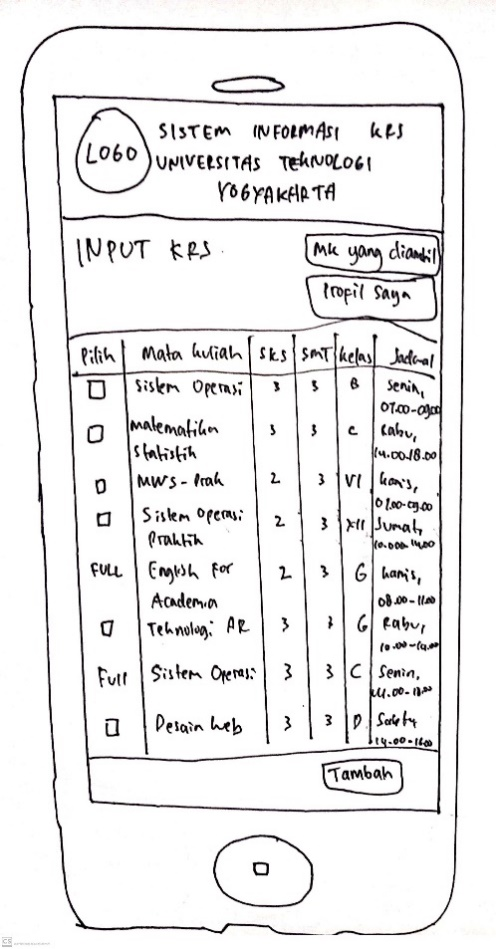 LOGO
SISTEM INFORMASI KRS
UNIVERSITAS TEKNOLOGI
YOGYAKARTA
INPUT KRS
MK yang diambil
Profil Saya
Pilih Mata kuliah SKS SMT kelas Jadwal
Sistem Operasi 3 3 B Senin,
07.00-09.00
Matematika 3 3 C Rabu,
Statistik 14.00-18.00
MWS-Prak 2 3 VI kamis,
07.00-09.00
Sistem Operasi 2 3 XII Jumat,
Praktik 10.00-14.00
FULL English For 2 3 G kamis,
Academia 08.00-11.00
Teknologi AR 3 3 G Rabu,
10.00-14.00
Full Sistem Operasi 3 3 C Senin,
Desain Web 3 3 D
14.00-16.00
Tambah